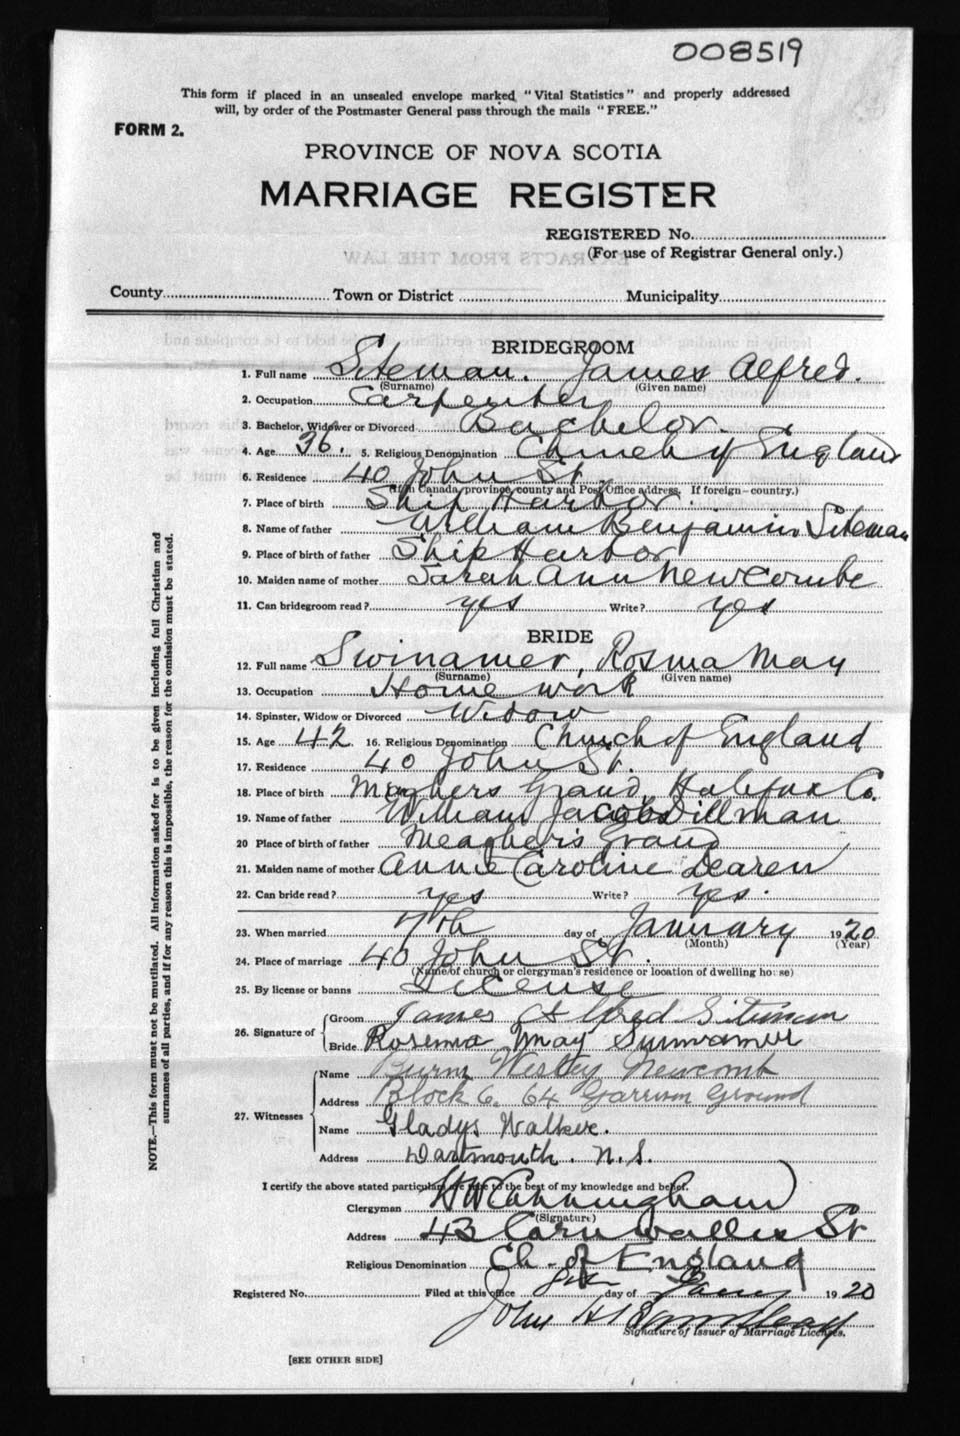 008519
This form if placed in an unsealed envelope marked "Vital Statistics" and properly addressed
will, by order of the Postmaster General pass through the mails "FREE."
FORM 2.
PROVINCE OF NOVA SCOTIA
MARRIAGE REGISTER
REGISTERED No.
(For use of Registrar General only.)
County Town or District Municipality
BRIDEGROOM
1. Full name Siteman. James Alfred.
(Surname) (Given name)
2. Occupation Carpenter
3. Bachelor, Widower or Divorced Bachelor.
4. Age 36. 5. Religious Denomination Church of England
6. Residence 40 John St.
(If in Canada, province, county and Post Office address. If foreign - country.)
7. Place of birth Ship Harbor.
8. Name of father William Benjamin Siteman
9. Place of birth of father Ship Harbor
10. Maiden name of mother Sarah Ann Newcombe
11. Can bridegroom read? yes Write? yes
BRIDE
12. Full name Swinamer, Rosma May
(Surname) (Given name)
13. Occupation Home work
14. Spinster, Widow or Divorced Widow
15. Age 42. 16. Religious Denomination Church of England
17. Residence 40 John St.
18. Place of birth Maghers Grand, Halifax Co.
19. Name of father William Jacob Dillman
20 Place of birth of father Meagher's Grand
21. Maiden name of mother Annie Caroline Dearen
22. Can bride read? yes Write? yes.
23. When married 7th day of January 1920
(Month) (Year)
24. Place of marriage 40 John St.
(Name of church or clergyman's residence or location of dwelling house)
25. By license or banns License
26. Signature of Groom James Alfred Siteman
Bride Rosema May Swinamer
27. Witnesses
Name Wesley Newcomb
Address Block 6. 64 Garrison Ground
Name Gladys Walker.
Address Dartmouth. N.S.
I certify the above stated particulars are true to the best of my knowledge and belief.
Clergyman H W Cunningham
(Signature)
Address 43 Cornwallis St
Religious Denomination Ch - of England
Registered No. Filed at this office day of Jany 1920
John H
Signature of Issuer of Marriage Licenses.
[SEE OTHER SIDE]
NOTE.—This form must not be mutilated. All information asked for is to be given including full Christian and
surnames of all parties, and if for any reason this is impossible, the reason for the omission must be stated.